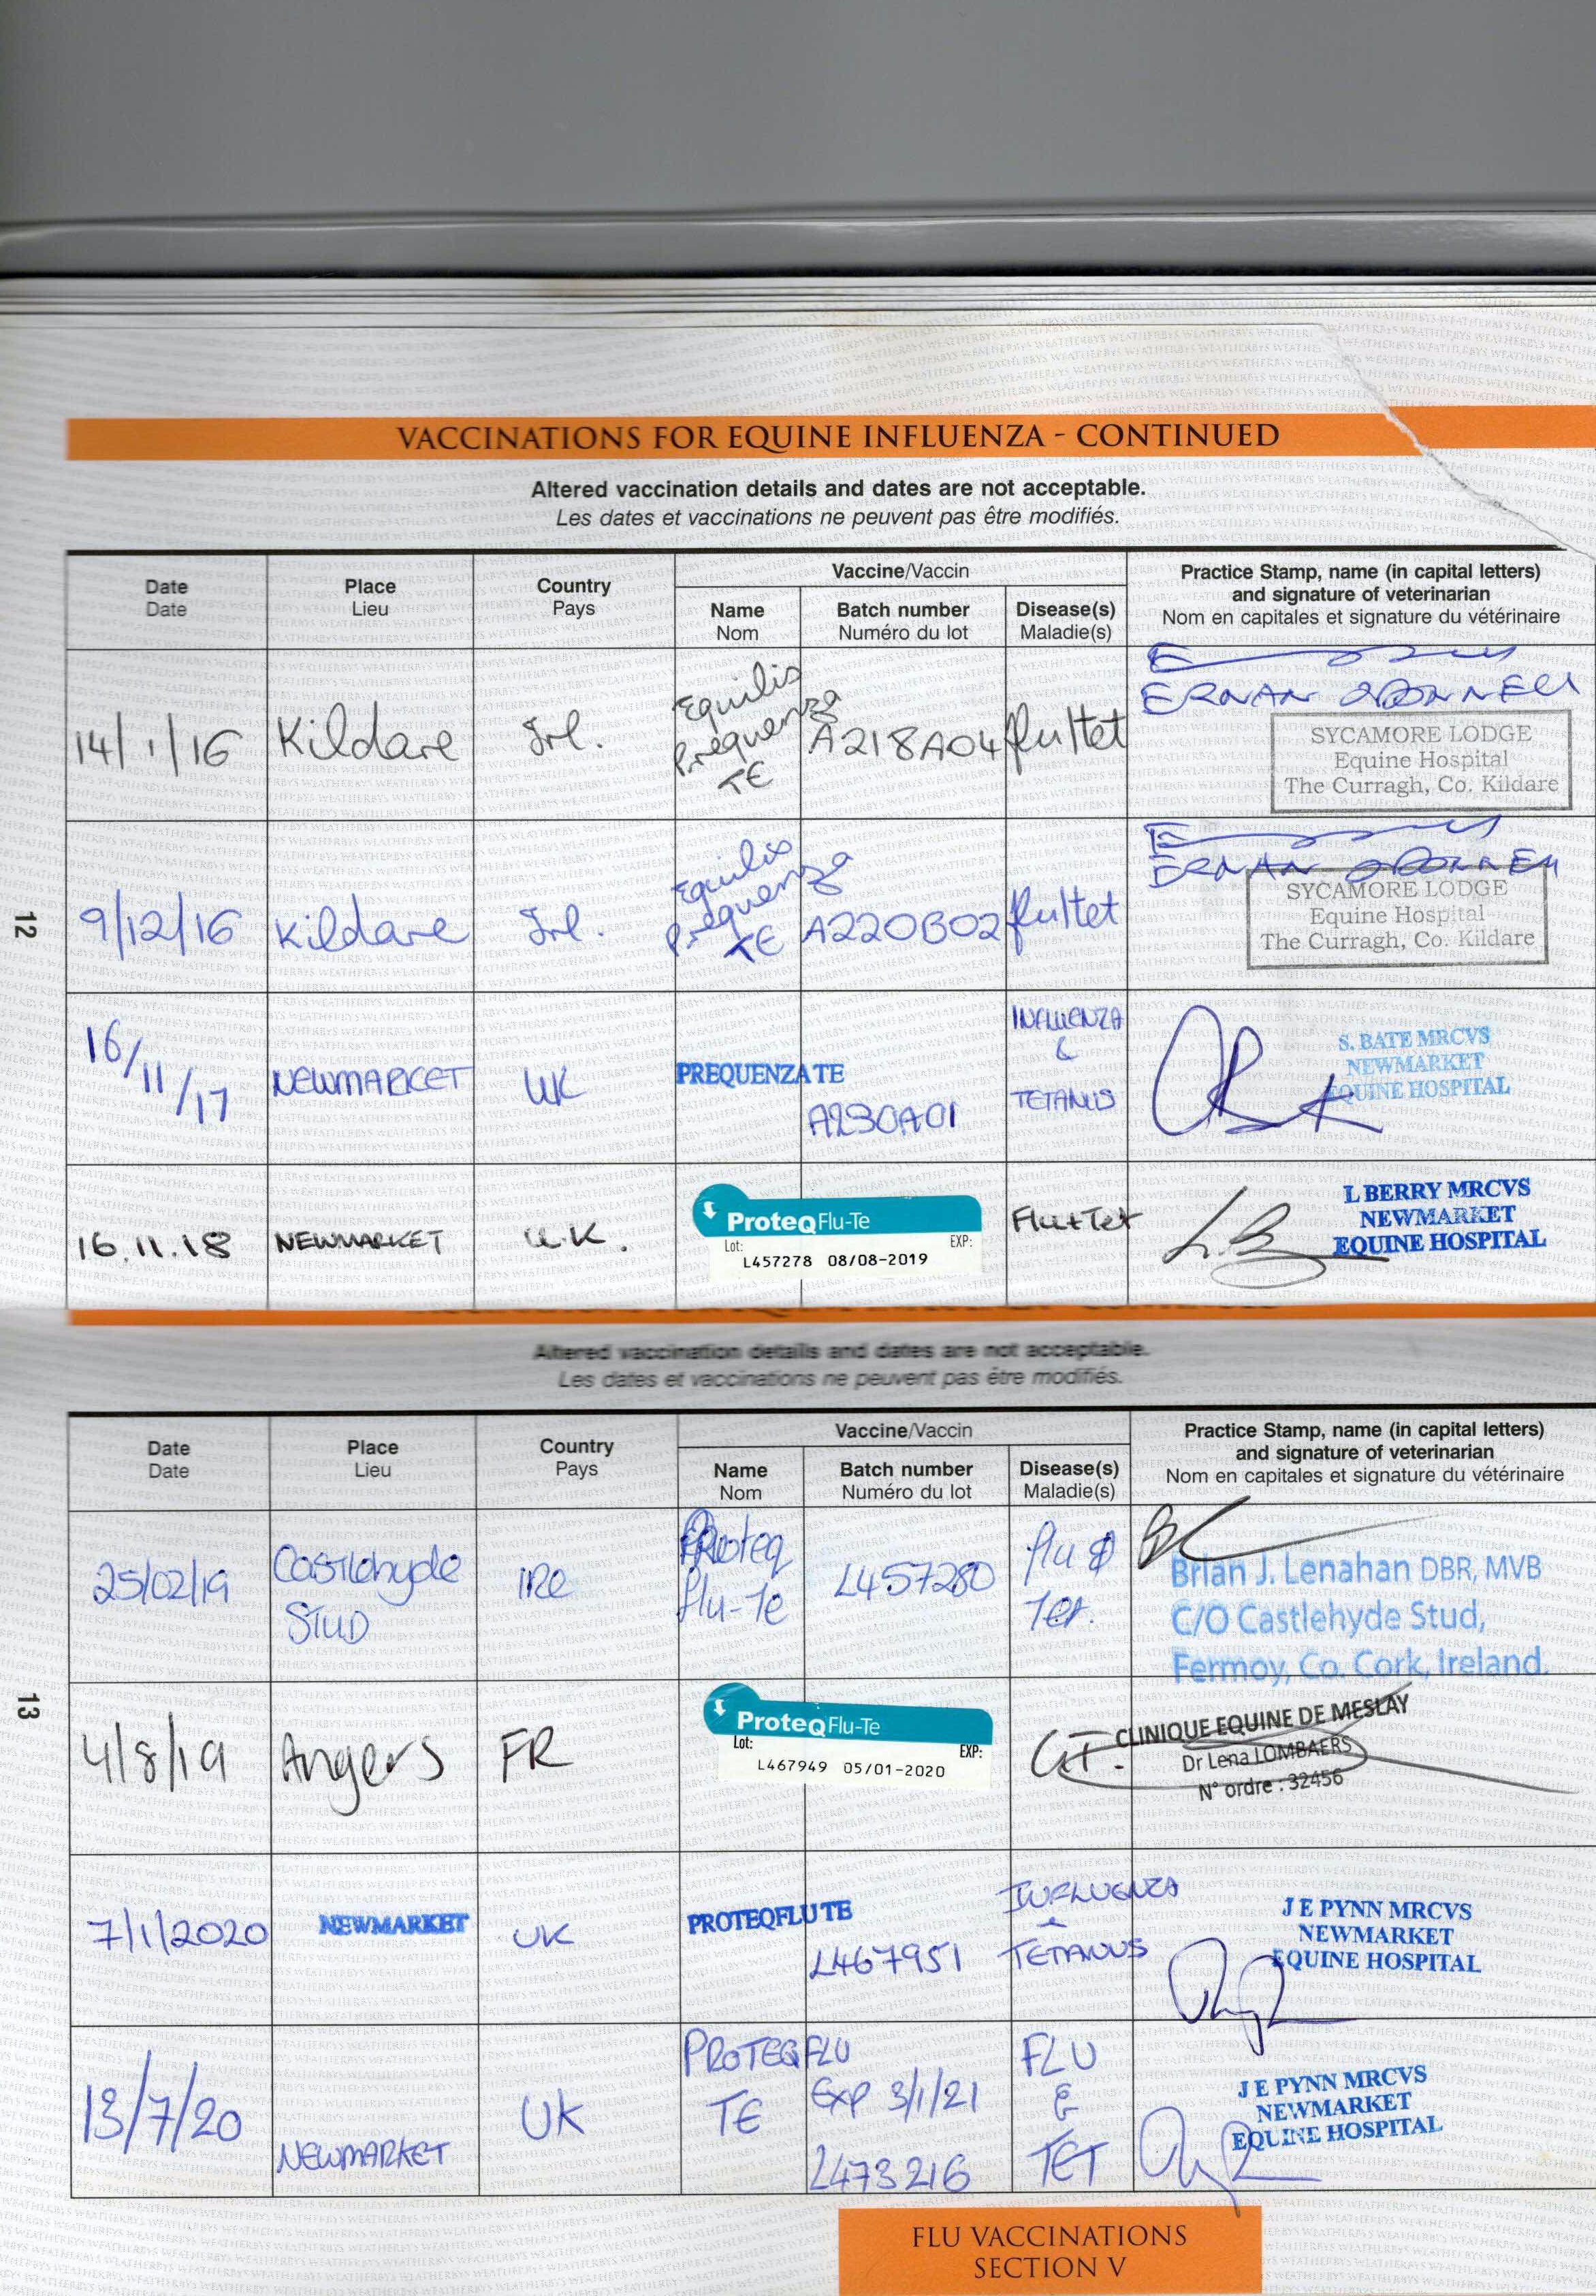 VACCINATIONS FOR EQUINE INFLUENZA - CONTINUED
Altered vaccination details and dates are not acceptable.
Les dates et vaccinations ne peuvent pas être modifiés.
Date
Date
Place
Lieu
Country
Pays
Vaccine/Vaccin
Name
Nom
Batch number
Numéro du lot
Disease(s)
Maladie(s)
Practice Stamp, name (in capital letters)
and signature of veterinarian
Nom en capitales et signature du vétérinaire
14/1/16 Kildare Irl.
Equilis
Prequenza
TE
A218A04 flu/tet
ERNAN O'DONNELL
SYCAMORE LODGE
Equine Hospital
The Curragh, Co. Kildare
9/12/16 Kildare Irl.
Equilis
Prequenza
TE
A220B02 flu/tet
ERNAN O'DONNELL
SYCAMORE LODGE
Equine Hospital
The Curragh, Co. Kildare
12
16/11/17 NEWMARKET UK
PREQUENZA TE
A230A01
INFLUENZA
&
TETANUS
S. BATE MRCVS
NEWMARKET
EQUINE HOSPITAL
16.11.18 NEWMARKET U.K.
ProteqFlu-Te
Lot: EXP:
L457278 08/08-2019
Flu+Tet
L BERRY MRCVS
NEWMARKET
EQUINE HOSPITAL
Altered vaccination details and dates are not acceptable.
Les dates et vaccinations ne peuvent pas être modifiés.
Date
Date
Place
Lieu
Country
Pays
Vaccine/Vaccin
Name
Nom
Batch number
Numéro du lot
Disease(s)
Maladie(s)
Practice Stamp, name (in capital letters)
and signature of veterinarian
Nom en capitales et signature du vétérinaire
25/02/19
Castlehyde
STUD
IRE
Proteq
Flu-Te
L457280
flu &
Tet.
Brian J. Lenahan DBR, MVB
C/O Castlehyde Stud,
Fermoy, Co. Cork, Ireland.
13
4/8/19 Angers FR
ProteqFlu-Te
Lot: EXP:
L467949 05/01-2020
G.T.
CLINIQUE EQUINE DE MESLAY
Dr Lena LOMBAERS
N° ordre : 32456
7/1/2020 NEWMARKET UK
PROTEQFLU TE
L467951
INFLUENZA
TETANUS
J E PYNN MRCVS
NEWMARKET
EQUINE HOSPITAL
13/7/20
NEWMARKET
UK
PROTEQFLU
TE
Exp 3/1/21
L473216
FLU
&
TET
J E PYNN MRCVS
NEWMARKET
EQUINE HOSPITAL
FLU VACCINATIONS
SECTION V